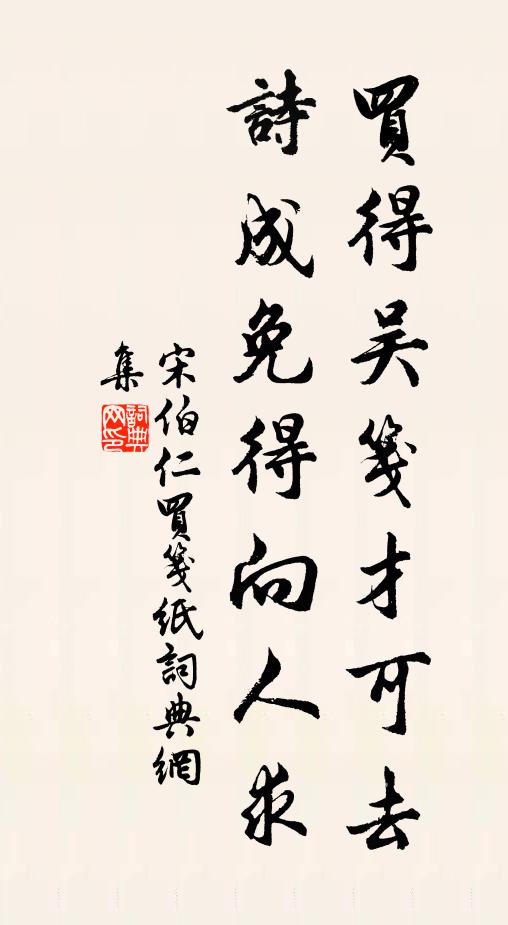 買得吴箋才可去
詩成免得向人求
宋伯仁買箋紙詞典網
集
詞典网印